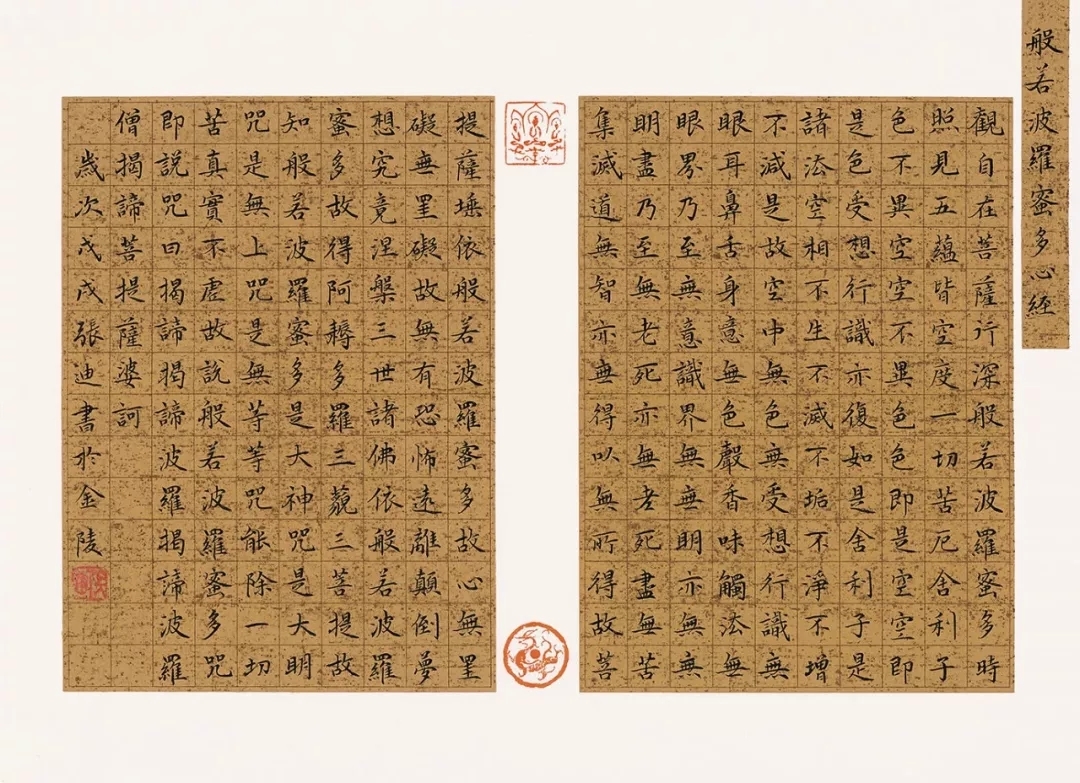 般若波羅蜜多心經
觀自在菩薩行深般若波羅蜜多時
照見五蘊皆空度一切苦厄舍利子
色不異空空不異色色即是空空即
是色受想行識亦復如是舍利子是
諸法空相不生不滅不垢不淨不增
不減是故空中無色無受想行識無
眼耳鼻舌身意無色聲香味觸法無
眼界乃至無意識界無無明亦無無
明盡乃至無老死亦無老死盡無苦
集滅道無智亦無得以無所得故菩
提薩埵依般若波羅蜜多故心無罣
礙無罣礙故無有恐怖遠離顛倒夢
想究竟涅槃三世諸佛依般若波羅
蜜多故得阿耨多羅三藐三菩提故
知般若波羅蜜多是大神咒是大明
咒是無上咒是無等等咒能除一切
苦真實不虛故說般若波羅蜜多咒
即說咒曰揭諦揭諦波羅揭諦波羅
僧揭諦菩提薩婆訶
歲次戊戌張迪書於金陵